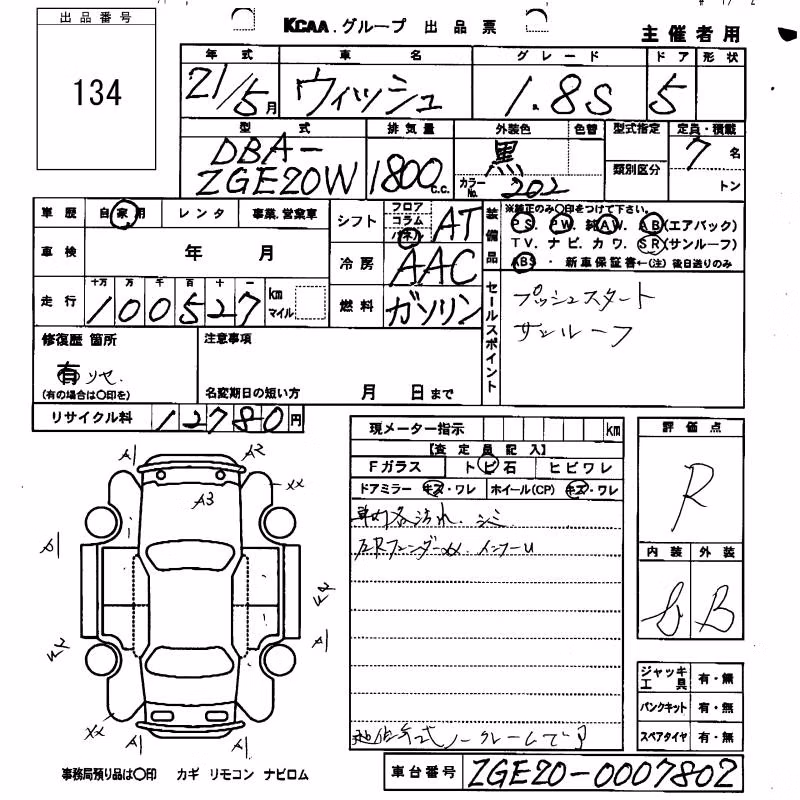 出品番号
134
KCAA.グループ 出品票
主催者用
年式 車名 グレード ドア 形状
21/5月 ウィッシュ 1.8S 5
型式 排気量 外装色 色替 型式指定 定員・積載
DBA-
ZGE20W 1800c.c. 黒 類別区分 7名
カラーNo. 202 トン
車歴 自家用 レンタ 事業、営業車
シフト フロア コラム パネル AT
装備品 ※純正のみ○印をつけて下さい。
PS. PW. 純AW. AB(エアバック)
TV. ナビ. カワ. SR(サンルーフ)
ABS ・ 新車保証書←(注)後日送りのみ
車検 年 月
冷房 AAC
走行 十万 万 千 百 十 一
100527 km マイル
燃料 ガソリン
セールスポイント
プッシュスタート
サンルーフ
修復歴 箇所
有 リヤセ.
(有の場合は○印を)
注意事項
名変期日の短い方 月 日まで
リサイクル料 12780円
現メーター指示 km
【査定員記入】
Fガラス トビ石 ヒビワレ
ドアミラー キズ・ワレ ホイール(CP) キズ・ワレ
評価点
R
内装 外装
B
A1 A2
XX
A3
A1
A1
XX
ジャッキ工具 有・無
パンクキット 有・無
スペアタイヤ 有・無
事務局預り品は○印 カギ リモコン ナビロム
車台番号 ZGE20-0007802